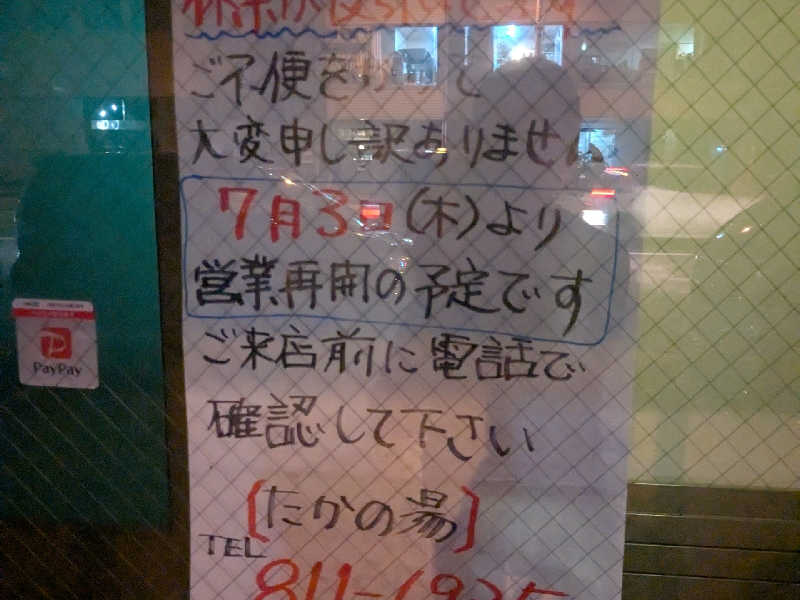 ご不便をかけて
大変申し訳ありません
7月3日(木)より
営業再開の予定です
ご来店前に電話で
確認して下さい
[たかの湯]
TEL
PayPay